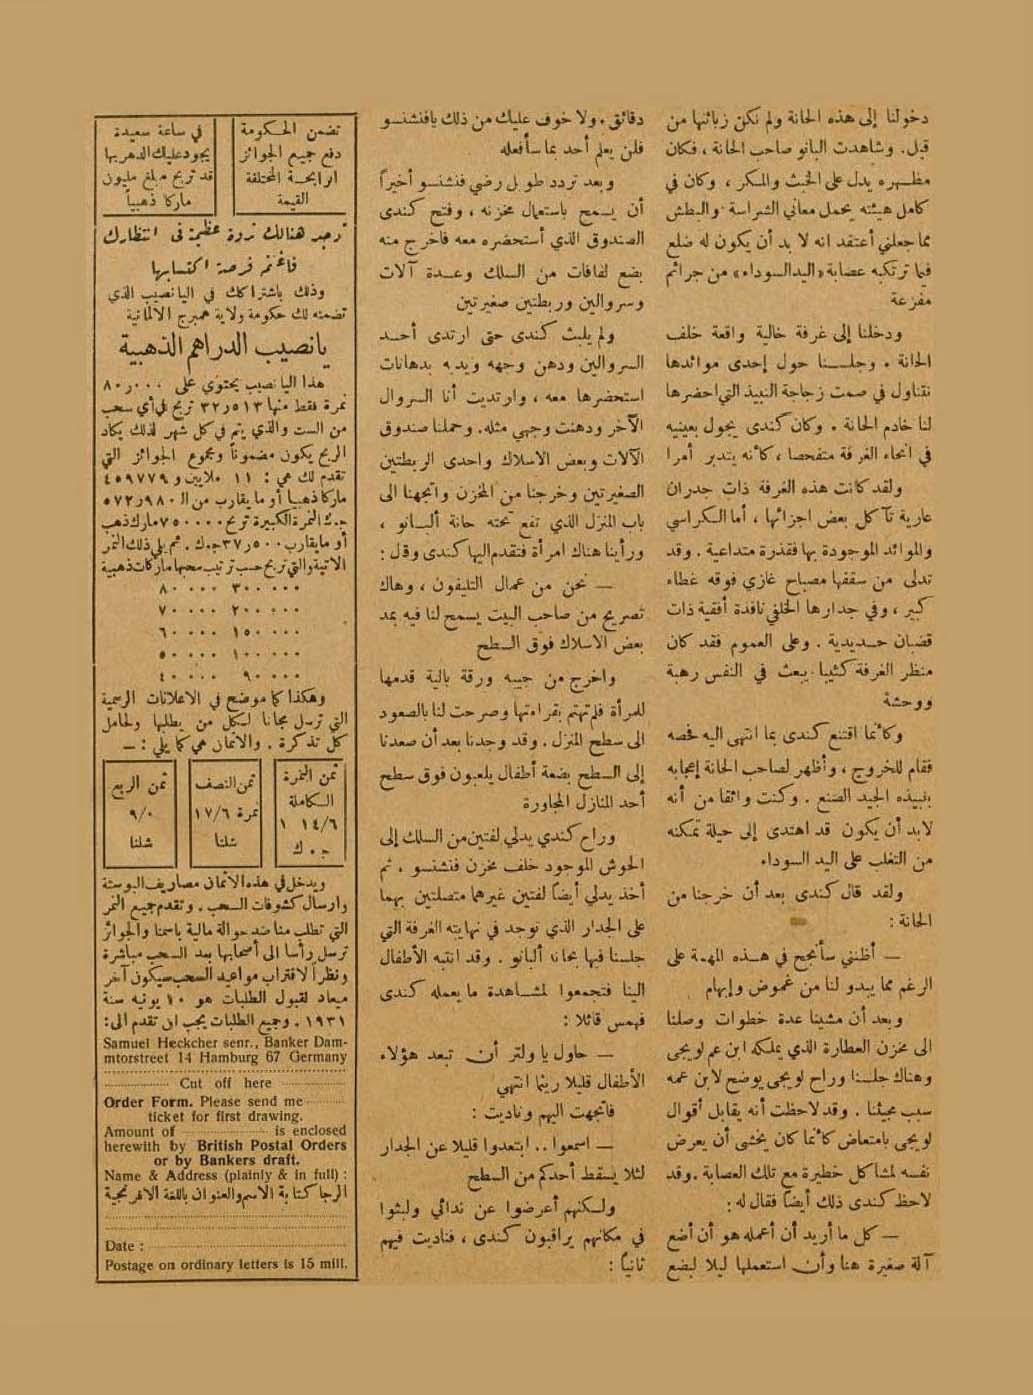 دخولنا إلى هذه الحانة ولم نكن زبائنها من
قبل. وشاهدت البانو صاحب الحانة ، فكان
مظهره يدل على الخبث والمكر ، وكان في
كامل هيئته يحمل معاني الشراسة والبطش
مما جعلني أعتقد انه لا بد أن يكون له ضلع
فيما ترتكبه عصابة «اليد السوداء» من جرائم
مفزعة
ودخلنا إلى غرفة خالية واقعة خلف
الحانة . وجلسنا حول إحدى موائدها
نتناول في صمت زجاجة النبيذ التي احضرها
لنا خادم الحانة . وكان كندى يجول بعينيه
في انحاء الغرفة متفحصا ، كأنه يتدبر أمرا
ولقد كانت هذه الغرفة ذات جدران
عارية تآكل بعض اجزائها ، أما الكراسي
والموائد الموجودة بها فقذرة متداعية . وقد
تدلى من سقفها مصباح غازي فوقه غطاء
كبير ، وفي جدارها الخلفي نافذة أفقية ذات
قضبان حديدية . وعلى العموم فقد كان
منظر الغرفة كئيبا يبعث في النفس رهبة
ووحشة
وكأنما اقتنع كندى بما انتهى اليه فحصه
فقام للخروج ، وأظهر لصاحب الحانة إعجابه
بنبيذه الجيد الصنع . وكنت واثقا من أنه
لا بد أن يكون قد اهتدى إلى حيلة تمكنه
من التغلب على اليد السوداء
ولقد قال كندى بعد أن خرجنا من
الحانة :
— أظنني سأنجح في هذه المهمة على
الرغم مما يبدو لنا من غموض وإبهام
وبعد أن مشينا عدة خطوات وصلنا
الى مخزن العطارة الذي يملكه ابن عم لويجى
وهناك جلسنا وراح لويجى يوضح لابن عمه
سبب مجيئنا . وقد لاحظت أنه يقابل أقوال
لويجى بامتعاض كأنما كان يخشى أن يعرض
نفسه لمشاكل خطيرة مع تلك العصابة . وقد
لاحظ كندى ذلك أيضاً فقال له :
— كل ما أريد أن أعمله هو أن أضع
آلة صغيرة هنا وأن استعملها ليلا لبضع
دقائق. ولا خوف عليك من ذلك يافنشنسو
فلن يعلم أحد بما سأفعله
وبعد تردد طويل رضي فنشنسو أخيراً
أن يسمح باستعمال مخزنه ، وفتح كندى
الصندوق الذي أستحضره معه فاخرج منه
بضع لفافات من السلك وعدة آلات
وسروالين وربطتين صغيرتين
ولم يلبث كندى حتى ارتدى أحد
السروالين ودهن وجهه ويديه بدهانات
استحضرها معه ، وارتديت أنا السروال
الآخر ودهنت وجهي مثله. وحملنا صندوق
الآلات وبعض الاسلاك واحدى الربطتين
الصغيرتين وخرجنا من المخزن واتجهنا الى
باب المنزل الذي تقع تحته حانة ألبانو ،
ورأينا هناك امرأة فتقدم اليها كندى وقال :
— نحن من عمال التليفون ، وهاك
تصريح من صاحب البيت يسمح لنا فيه بمد
بعض الاسلاك فوق السطح
واخرج من جيبه ورقة بالية قدمها
للمرأة فلم تهتم بقراءتها وصرحت لنا بالصعود
الى سطح المنزل . وقد وجدنا بعد أن صعدنا
إلى السطح بضعة أطفال يلعبون فوق سطح
أحد المنازل المجاورة
وراح كندي يدلي لفتين من السلك إلى
الحوش الموجود خلف مخزن فنشنسو . ثم
أخذ يدلي أيضاً لفتين غيرهما متصلتين بهما
على الجدار الذي توجد في نهايته الغرفة التي
جلسنا فيها بحانة ألبانو . وقد انتبه الأطفال
الينا فتجمعوا لمشاهدة ما يعمله كندى
فهمس قائلا :
— حاول يا ولتر أن تبعد هؤلاء
الأطفال قليلا ريثما انتهي
فاتجهت اليهم وناديت :
— اسمعوا .. ابتعدوا قليلا عن الجدار
لئلا يسقط أحدكم من السطح
ولكنهم أعرضوا عن ندائي ولبثوا
في مكانهم يراقبون كندى ، فناديت فيهم
ثانياً :
تضمن الحكومة
دفع جميع الجوائز
الرابحة المختلفة
القيمة
في ساعة سعيدة
يجود عليك الدهر بها
قد تربح مبلغ مليون
ماركا ذهبياً
توجد هنالك ثروة عظيمة فى انتظارك
فاغتنم فرصة اكتسابها
وذلك باشتراكك في اليانصيب الذي
تضمنه لك حكومة ولاية همبرج الالمانية
يانصيب الدراهم الذهبية
هذا اليانصيب يحتوي على ٨٠٫٠٠٠
نمرة فقط منها ٣٢٫٥١٣ تربح في أي سحب
من الست والذي يتم في كل شهر لذلك يكاد
الربح يكون مضموناً ومجموع الجوائز التي
تقدم لك هي : ١١ ملايين و ٤٥٩٧٧٩
ماركا ذهبيا أو ما يقارب من الـ ٥٧٢٫٩٨٠
ج.ك النمرة الكبيرة تربح ٧٥٠٠٠٠ مارك ذهب
أو مايقارب ٣٧٫٥٠٠ ج.ك . ثم يلي ذلك النمر
الاتية والتي تربح حسب ترتيب سحبها ماركات ذهبية
٣٠٠.٠٠٠ ٨٠.٠٠٠
٢٠٠.٠٠٠ ٧٠.٠٠٠
١٥٠.٠٠٠ ٦٠.٠٠٠
١٠٠.٠٠٠ ٥٠.٠٠٠
٩٠.٠٠٠ ٤٠.٠٠٠
وهكذا كما موضح في الاعلانات الرسمية
التي ترسل مجانا لكل من يطلبها ولحامل
كل تذكرة . والاثمان هي كما يلي : —
ثمن النمرة
الكاملة
١ ١٤/٦
ج . ك
ثمن النصف
نمرة ١٧/٦
شلنا
ثمن الربع
٩/٠
شلنا
ويدخل في هذه الاثمان مصاريف البوستة
وارسال كشوفات السحب . وتقدم جميع النمر
التي تطلب منا ضد حوالة مالية باسمنا والجوائز
ترسل رأسا الى أصحابها بعد السحب مباشرة
ونظراً لاقتراب مواعيد السحب سيكون آخر
ميعاد لقبول الطلبات هو ١٠ يونيه سنة
١٩٣١ . وجميع الطلبات يجب ان تقدم الى:
Samuel Heckcher senr., Banker Dam-
mtorstreet 14 Hamburg 67 Germany
Cut off here
Order Form. Please send me
ticket for first drawing.
Amount of is enclosed
herewith by British Postal Orders
or by Bankers draft.
Name & Address (plainly & in full) :
الرجا كتابة الاسم والعنوان باللغة الافرنجية
Date :
Postage on ordinary letters is 15 mill.